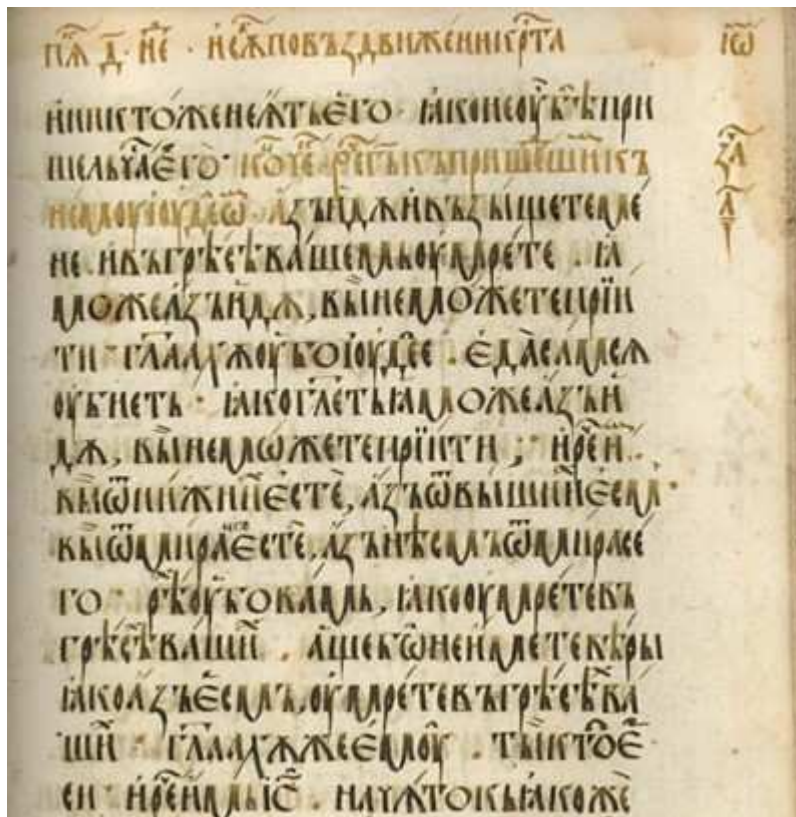 и никтоже не ѧтъ его · ꙗко не оу бѣ при
шелъ ча҄ е҆го̀ · ко҄ч҄е. рече г҄ь къ пришедшїи҄къ
не му їоуде҄ѡ҄ · а҆зъ и҆дѫ и҆ взыщете ме
не. и҆ въ грѣсѣ вашемь оу҆мрете . ꙗ
може а҆зъ и҆дѫ, вы̀ не можете прїи
ти · гл҃аахѫ оубо їоуде҄е · е҆да̀ са́мь сѧ
оубїеть · ꙗко гл҃еть ꙗможе а҆зъ и
дѫ, вы̀ не мѡжете прїити ; и҆ ре҄ и҄ .
вы̀ ѿ нижни҄ е҆стѐ, а҆зъ ѿ вышни҄ е҆смь ·
вы̀ ѿ мира е҆стѐ, а҆зъ нѣсмъ ѿ мира се
го · рѣ҄ оубо вамь, ꙗко оумрете въ
грѣсѣ҄ ваши҄ . а҆ще бѡ не и҆мете вѣры
ꙗко а҆зъ е҆смъ, оумрете въ грѣсѣ҄ ва
ши҄ · гл҃аахѫ же е҆моу҄ . ты̀ кто̀ е҆
си · и҆ ре҄ и҆мь і҃с . начѧтокь ꙗкоже